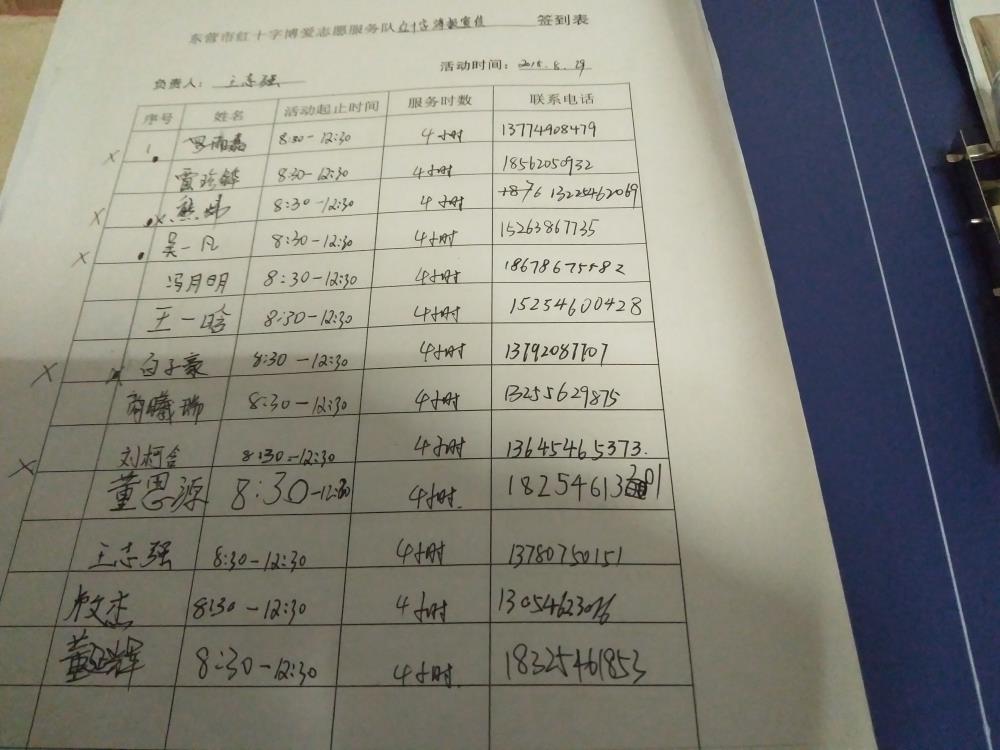 东营市红十字博爱志愿服务队红十字博爱宣传 签到表
负责人：王志强 活动时间：2018.8.29
序号 姓名 活动起止时间 服务时数 联系电话
1 8:30-12:30 4小时 13774908479
雷珍铧 8:30-12:30 4小时 18562050932
熊炜 8:30-12:30 4小时 13225462069
吴一凡 8:30-12:30 4小时 15263867735
冯月明 8:30-12:30 4小时 18678675582
王一晗 8:30-12:30 4小时 15254600428
白子豪 8:30-12:30 4小时 13792087707
曦瑞 8:30-12:30 4小时 13255629875
刘柯含 8:30-12:30 4小时 13645465373.
董思源 8:30-12:30 4小时.
王志强 8:30-12:30 4小时 13780750151
8:30-12:30 4小时 13054623076
董延辉 8:30-12:30 4小时. 18325461853